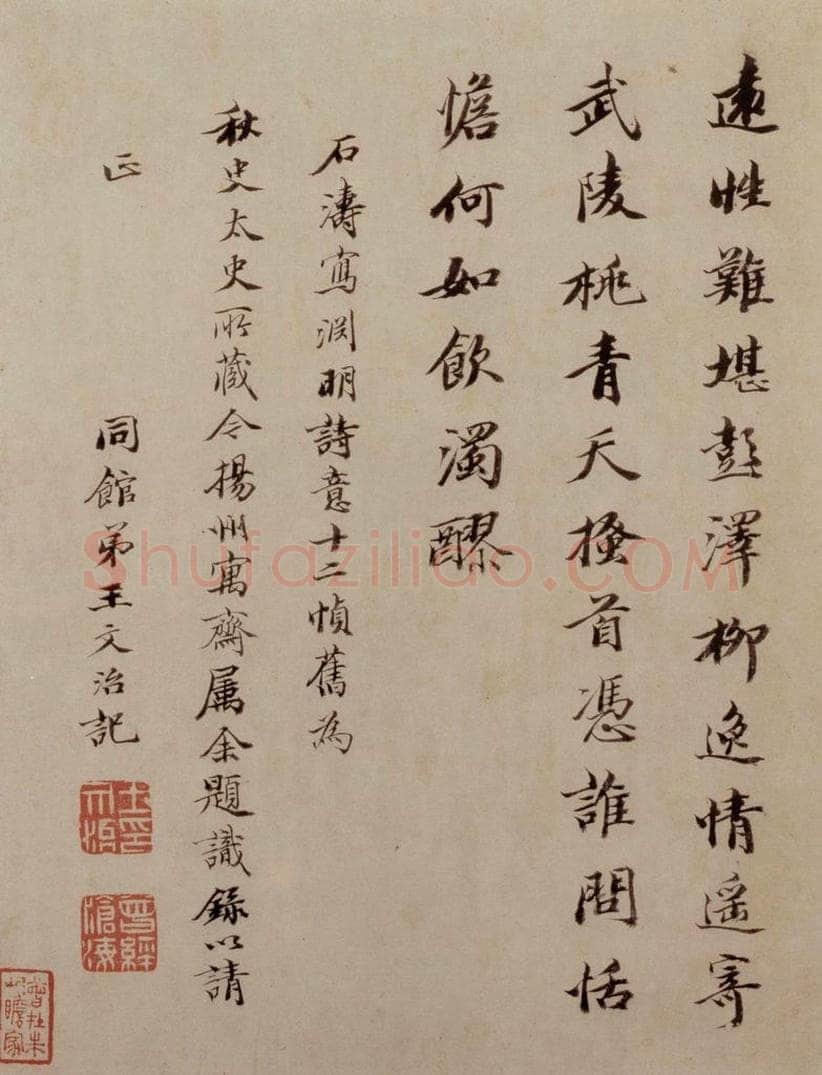 遠性難堪彭澤柳逸情遥寄
武陵桃青天搔首憑誰問恬
憺何如飲濁醪
石濤寫渊明詩意十二幀舊為
秋史太史所藏今揚州寓齋属余題識録以請
正
同館弟王文治記
王文治印
曾經滄海
Shufaziliao.COM